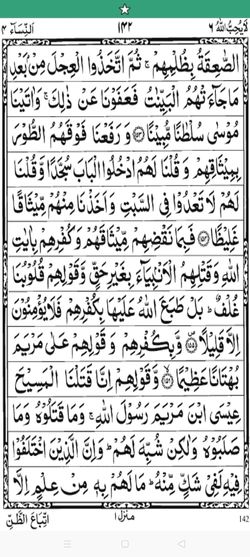 لَايُحِبُّ اللهُ ٦ ١٤٢ اَلنِّسَآء ٤
الصّٰعِقَةُ بِظُلْمِهِمْ ۚ ثُمَّ اتَّخَذُوا الْعِجْلَ مِنْۢ بَعْدِ
مَا جَآءَتْهُمُ الْبَيِّنٰتُ فَعَفَوْنَا عَنْ ذٰلِكَ ۚ وَاٰتَيْنَا
مُوْسٰى سُلْطٰنًا مُّبِيْنًا ﴿١٥٣﴾ وَرَفَعْنَا فَوْقَهُمُ الطُّوْرَ
بِمِيْثَاقِهِمْ وَقُلْنَا لَهُمُ ادْخُلُوا الْبَابَ سُجَّدًا وَّقُلْنَا
لَهُمْ لَا تَعْدُوْا فِى السَّبْتِ وَاَخَذْنَا مِنْهُمْ مِّيْثَاقًا
غَلِيْظًا ﴿١٥٤﴾ فَبِمَا نَقْضِهِمْ مِّيْثَاقَهُمْ وَكُفْرِهِمْ بِاٰيٰتِ
اللهِ وَقَتْلِهِمُ الْاَنْۢبِيَآءَ بِغَيْرِ حَقٍّ وَّقَوْلِهِمْ قُلُوْبُنَا
غُلْفٌ ؕ بَلْ طَبَعَ اللهُ عَلَيْهَا بِكُفْرِهِمْ فَلَا يُؤْمِنُوْنَ
اِلَّا قَلِيْلًا ﴿١٥٥﴾ وَّبِكُفْرِهِمْ وَقَوْلِهِمْ عَلٰى مَرْيَمَ
بُهْتَانًا عَظِيْمًا ﴿١٥٦﴾ وَّقَوْلِهِمْ اِنَّا قَتَلْنَا الْمَسِيْحَ
عِيْسَى ابْنَ مَرْيَمَ رَسُوْلَ اللهِ ۚ وَمَا قَتَلُوْهُ وَمَا
صَلَبُوْهُ وَلٰكِنْ شُبِّهَ لَهُمْ ؕ وَاِنَّ الَّذِيْنَ اخْتَلَفُوْا
فِيْهِ لَفِىْ شَكٍّ مِّنْهُ ؕ مَا لَهُمْ بِهٖ مِنْ عِلْمٍ اِلَّا
اتِّبَاعَ الظَّنِّ ۚ منزل ١ 142